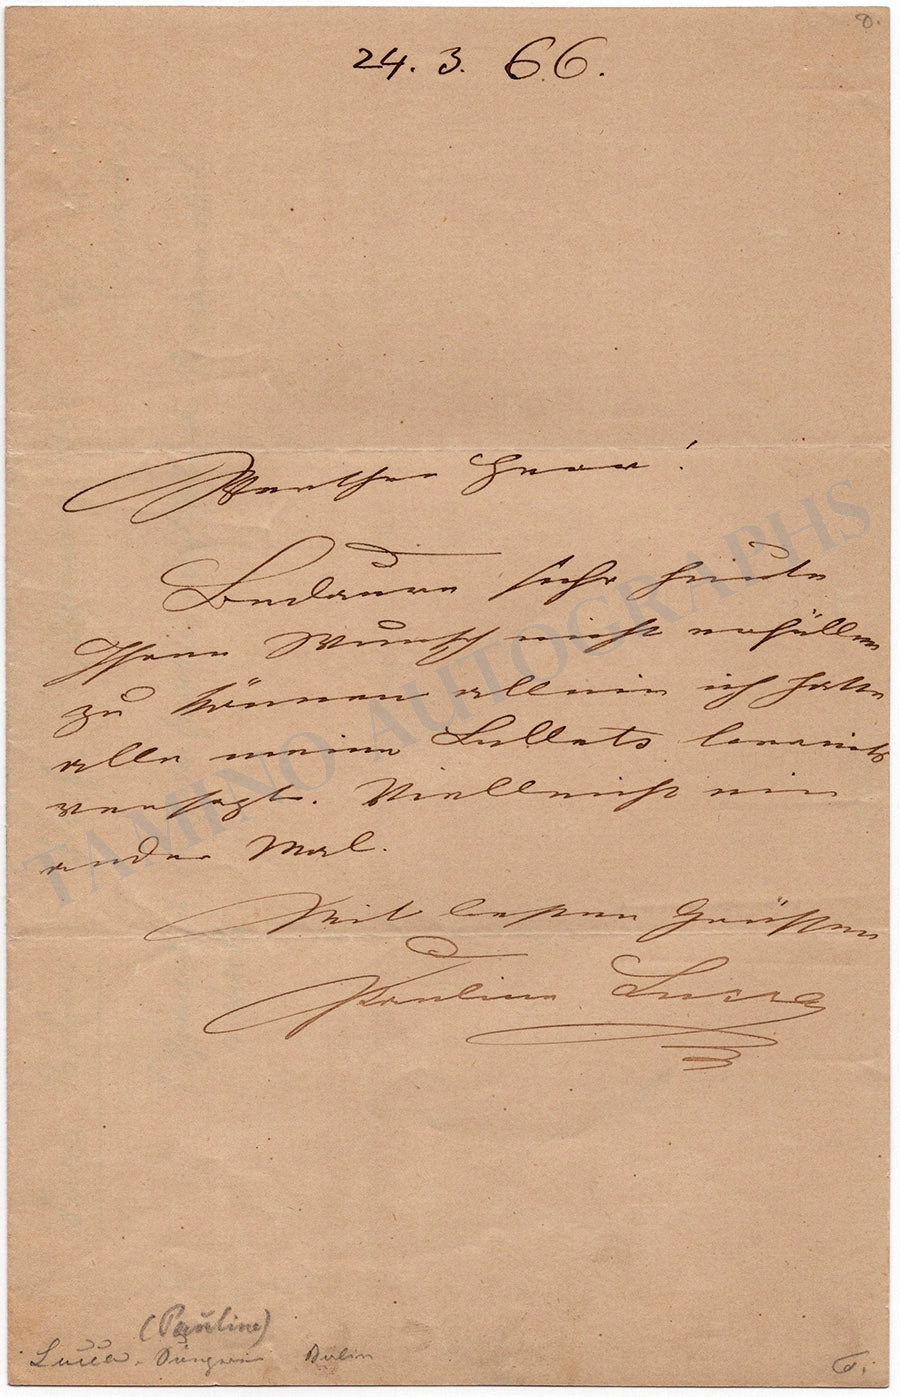 8.
24. 3. 66.
Werther Herr!
Bedaure sehr heute
Ihren Wunsch nicht erfüllen
zu können allein ich habe
alle meine Billets bereits
versagt. Vielleicht ein
ander Mal.
Mit besten Grüßen
Pauline Lucca
(Pauline)
Lucca. Sängerin Berlin
TAMINO AUTOGRAPHS